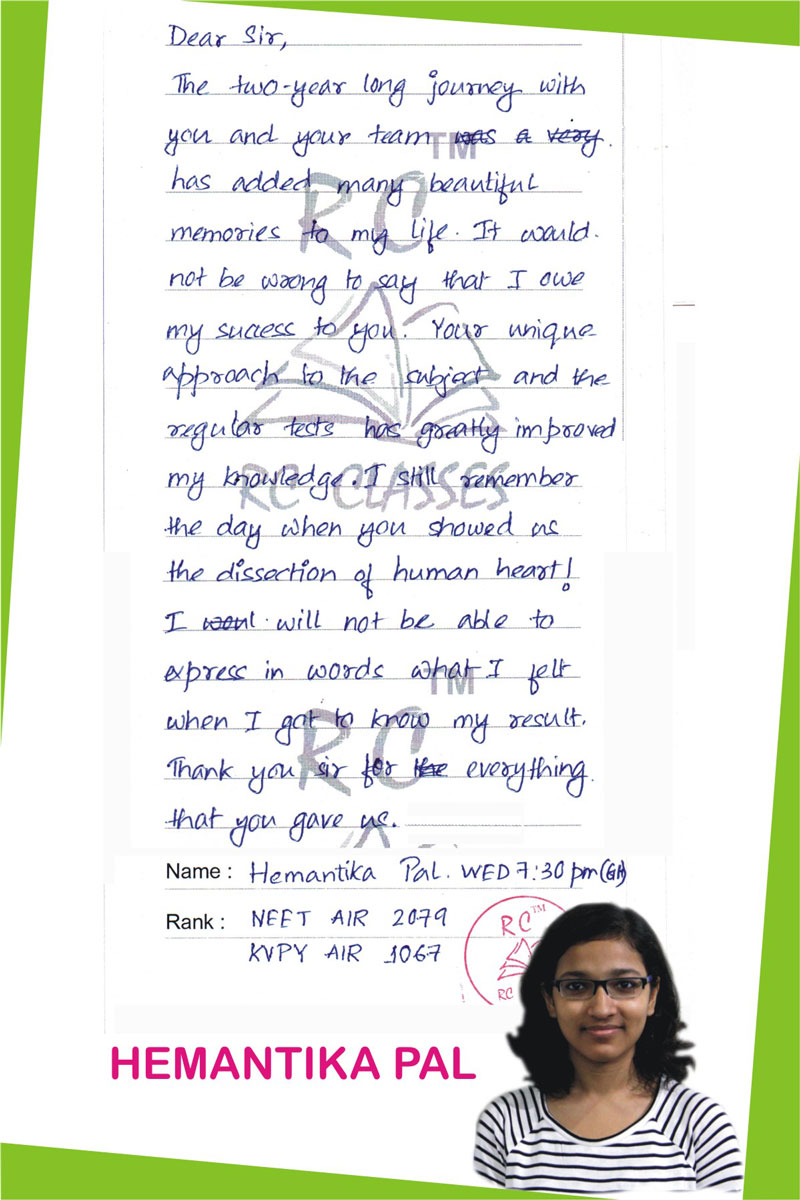 Dear Sir,
The two-year long journey with
you and your team was a very
TM
has added many beautiful
RC
memories to my life. It would
not be wrong to say that I owe
my success to you. Your unique
approach to the subject and the
regular tests has greatly improved
my knowledge. I still remember
RC CLASSES
the day when you showed us
the dissection of human heart!
I will not be able to
express in words what I felt
TM
when I got to know my result.
RC
Thank you sir for the everything
that you gave us.
Name : Hemantika Pal. WED 7:30 pm (GH)
Rank : NEET AIR 2079
KVPY AIR 1067
RC TM
RC
HEMANTIKA PAL